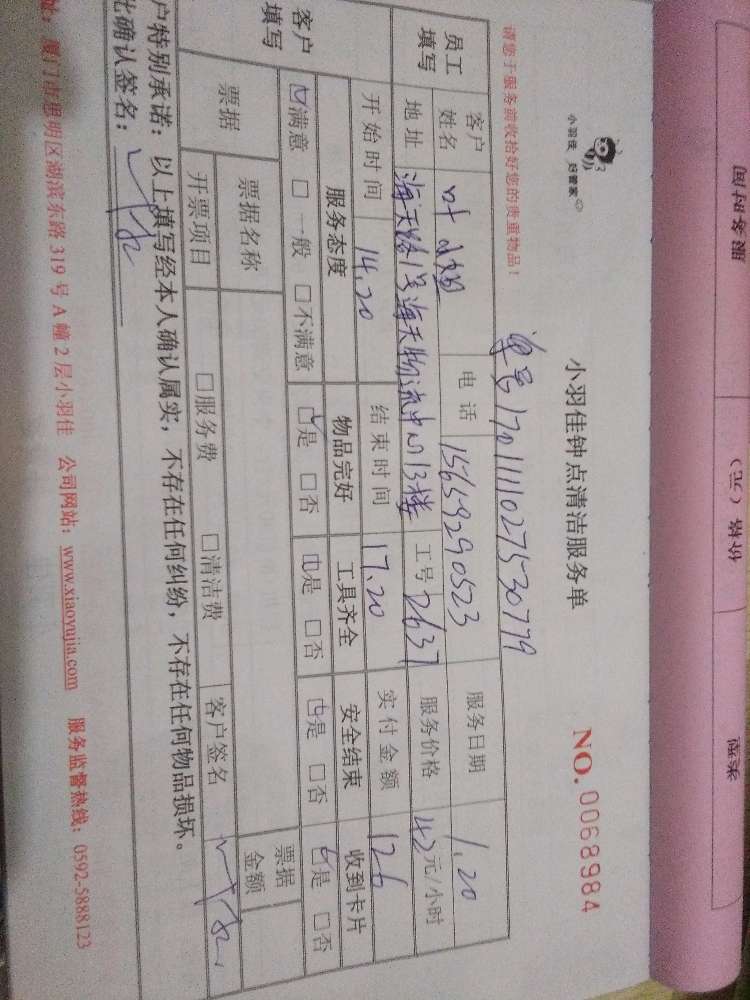 小羽佳 好管家
小羽佳钟点清洁服务单
NO. 0068984
单号1701111027530779
请您于服务前收拾好您的贵重物品！
员工填写 客户姓名 叶 电话 15659290523 服务日期 1.20
地址 海天路 海天物流中心13楼 工号 2637 服务价格 42元/小时
客户填写 开始时间 14.20 结束时间 17.20 实付金额 126
服务态度 物品完好 工具齐全 安全结束 收到卡片
☑满意 □一般 □不满意 ☑是 □否 ☑是 □否 ☑是 □否 ☑是 □否
票据 票据名称 票据金额
开票项目 □服务费 □清洁费 客户签名
户特别承诺：以上填写经本人确认属实，不存在任何纠纷，不存在任何物品损坏。
此确认签名：
址：厦门市思明区湖滨东路319号A幢2层小羽佳 公司网站：www.xiaoyujia.com 服务监督热线：0592-5888123